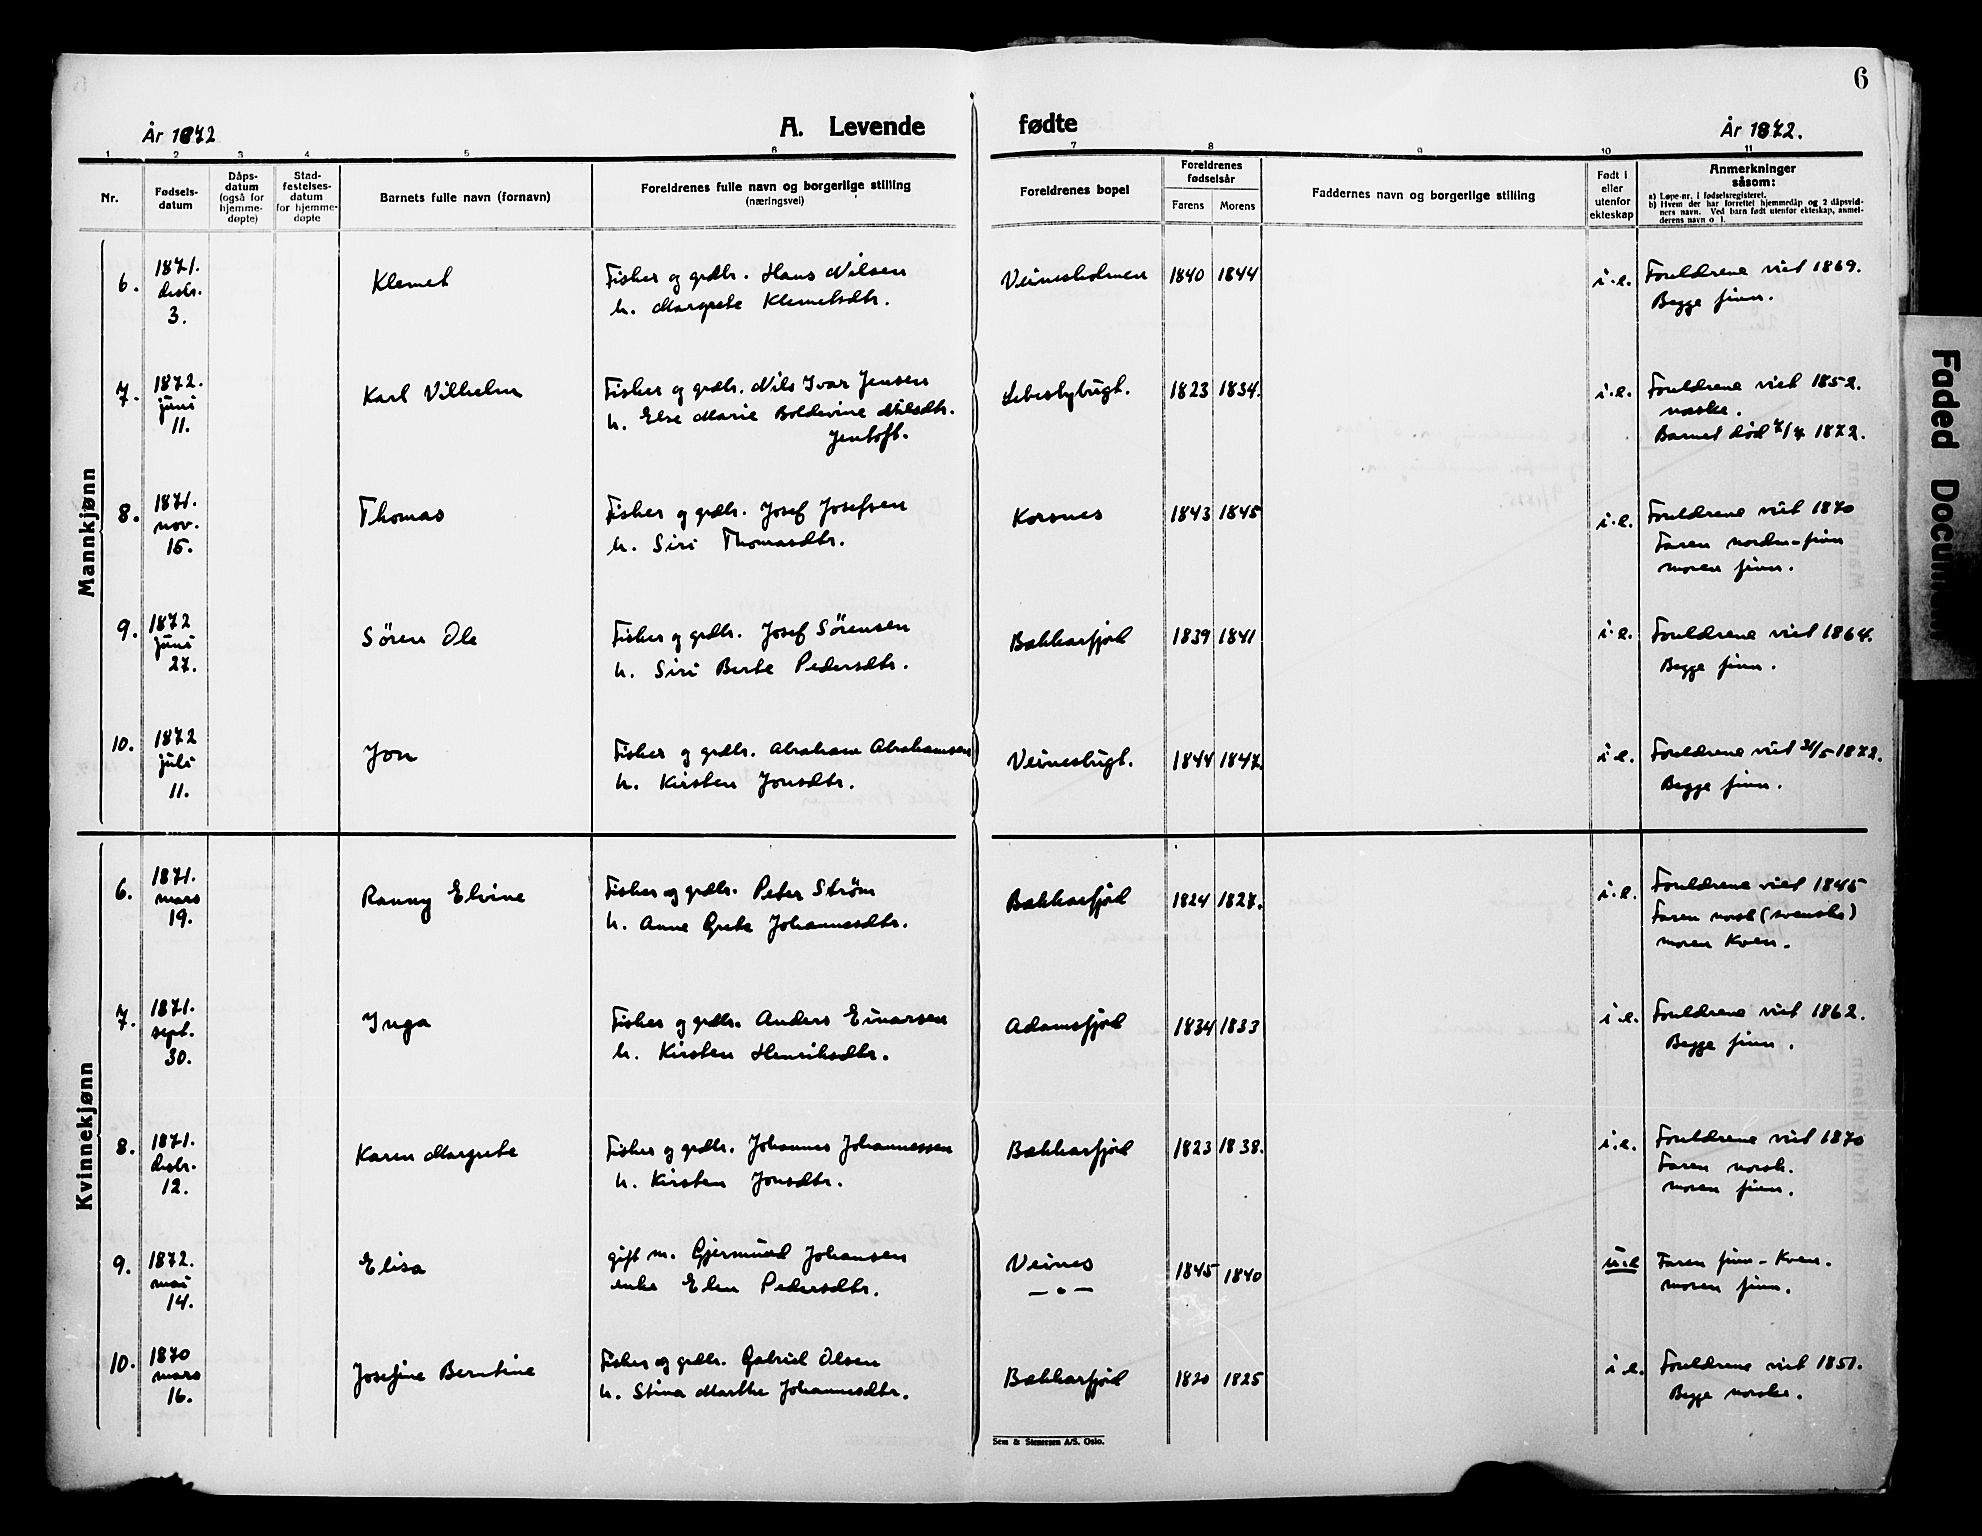 6
År 1872
A. Levende
fødte
År 1872.
1 2 3 4 5 6 7 8 9 10 11
Nr.
Fødsels-
datum
Dåps-
datum
(også for
hjemme-
døpte)
Stad-
festelses-
datum
for hjemme-
døpte
Barnets fulle navn (fornavn)
Foreldrenes fulle navn og borgerlige stilling
(næringsvei)
Foreldrenes bopel
Foreldrenes
fødselsår
Farens Morens
Faddernes navn og borgerlige stilling
Født i
eller
utenfor
ekteskap
Anmerkninger
såsom:
a) Løpe-nr. i fødselsregisteret.
b) Hvem der har forrettet hjemmedåp og 2 dåpsvid-
ners navn. Ved barn født utenfor ekteskap, anmel-
derens navn o. l.
Mannkjønn
6. 1871. desbr. 3. Klemet
Fisker og grdbr. Hans Nilsen
h. Margrete Klemetsdtr.
Veinesholmen 1840 1844 i.e.
Foreldrene viet 1869.
Begge finn.
7. 1872. juni 11. Karl Vilhelm
Fisker og grdbr. Nils Ivar Jensen
h. Else Marie Boldevine Nilsdtr.
Jentoft.
Lebesbybugt. 1823 1834. i.e.
Foreldrene viet 1852.
norske.
Barnet død 7/7 1872.
8. 1871. nov. 15. Thomas
Fisker og grdbr. Josef Josefsen
h. Siri Thomasdtr.
Korsnes 1843 1845 i.e.
Foreldrene viet 1870
Faren nordm-finn
moren finn.
9. 1872 juni 27. Søren Ole
Fisker og grdbr. Josef Sörensen
h. Siri Berte Pedersdtr.
Bekkarfjord 1839 1841 i.e.
Foreldrene viet 1864.
Begge finn.
10. 1872 juli 11. Jon
Fisker og grdbr. Abraham Abrahamsen
h. Kirsten Jonsdtr.
Veinesbugt. 1844 1847. i.e.
Foreldrene viet 31/5 1872.
Begge finn.
Kvinnekjønn
6. 1871. mars 19. Ranny Elvine
Fisker og grdbr. Peter Strøm
h. Anne Grete Johannesdtr.
Bekkarfjord 1824 1827. i.e.
Foreldrene viet 1845
Faren norsk (svensk)
moren Kven.
7. 1871. sept. 30. Inga
Fisker og grdbr. Anders Einarsen
h. Kirsten Henriksdtr.
Adamsfjord 1834 1833 i.e.
Foreldrene viet 1862.
Begge finn.
8. 1871. desbr. 12. Karen Margrete
Fisker og grdbr. Johannes Johannessen
h. Kirsten Jonsdtr.
Bekkarfjord 1823 1838. i.e.
Foreldrene viet 1870
Faren norsk.
moren finn.
9. 1872. mai 14. Elisa
gift m. Gjermund Johansen
enke Elen Pedersdtr.
Veines
— " —
1845 1840 u.e
Faren finn-Kven.
moren finn.
10. 1870 mars 16. Josefine Berntine
Fisker og grdbr. Gabriel Olsen
h. Stina Marthe Johannesdtr.
Bekkarfjord 1820 1825 i.e.
Foreldrene viet 1851.
Begge norske.
Sem & Stenersen A/S. Oslo.
Faded Document